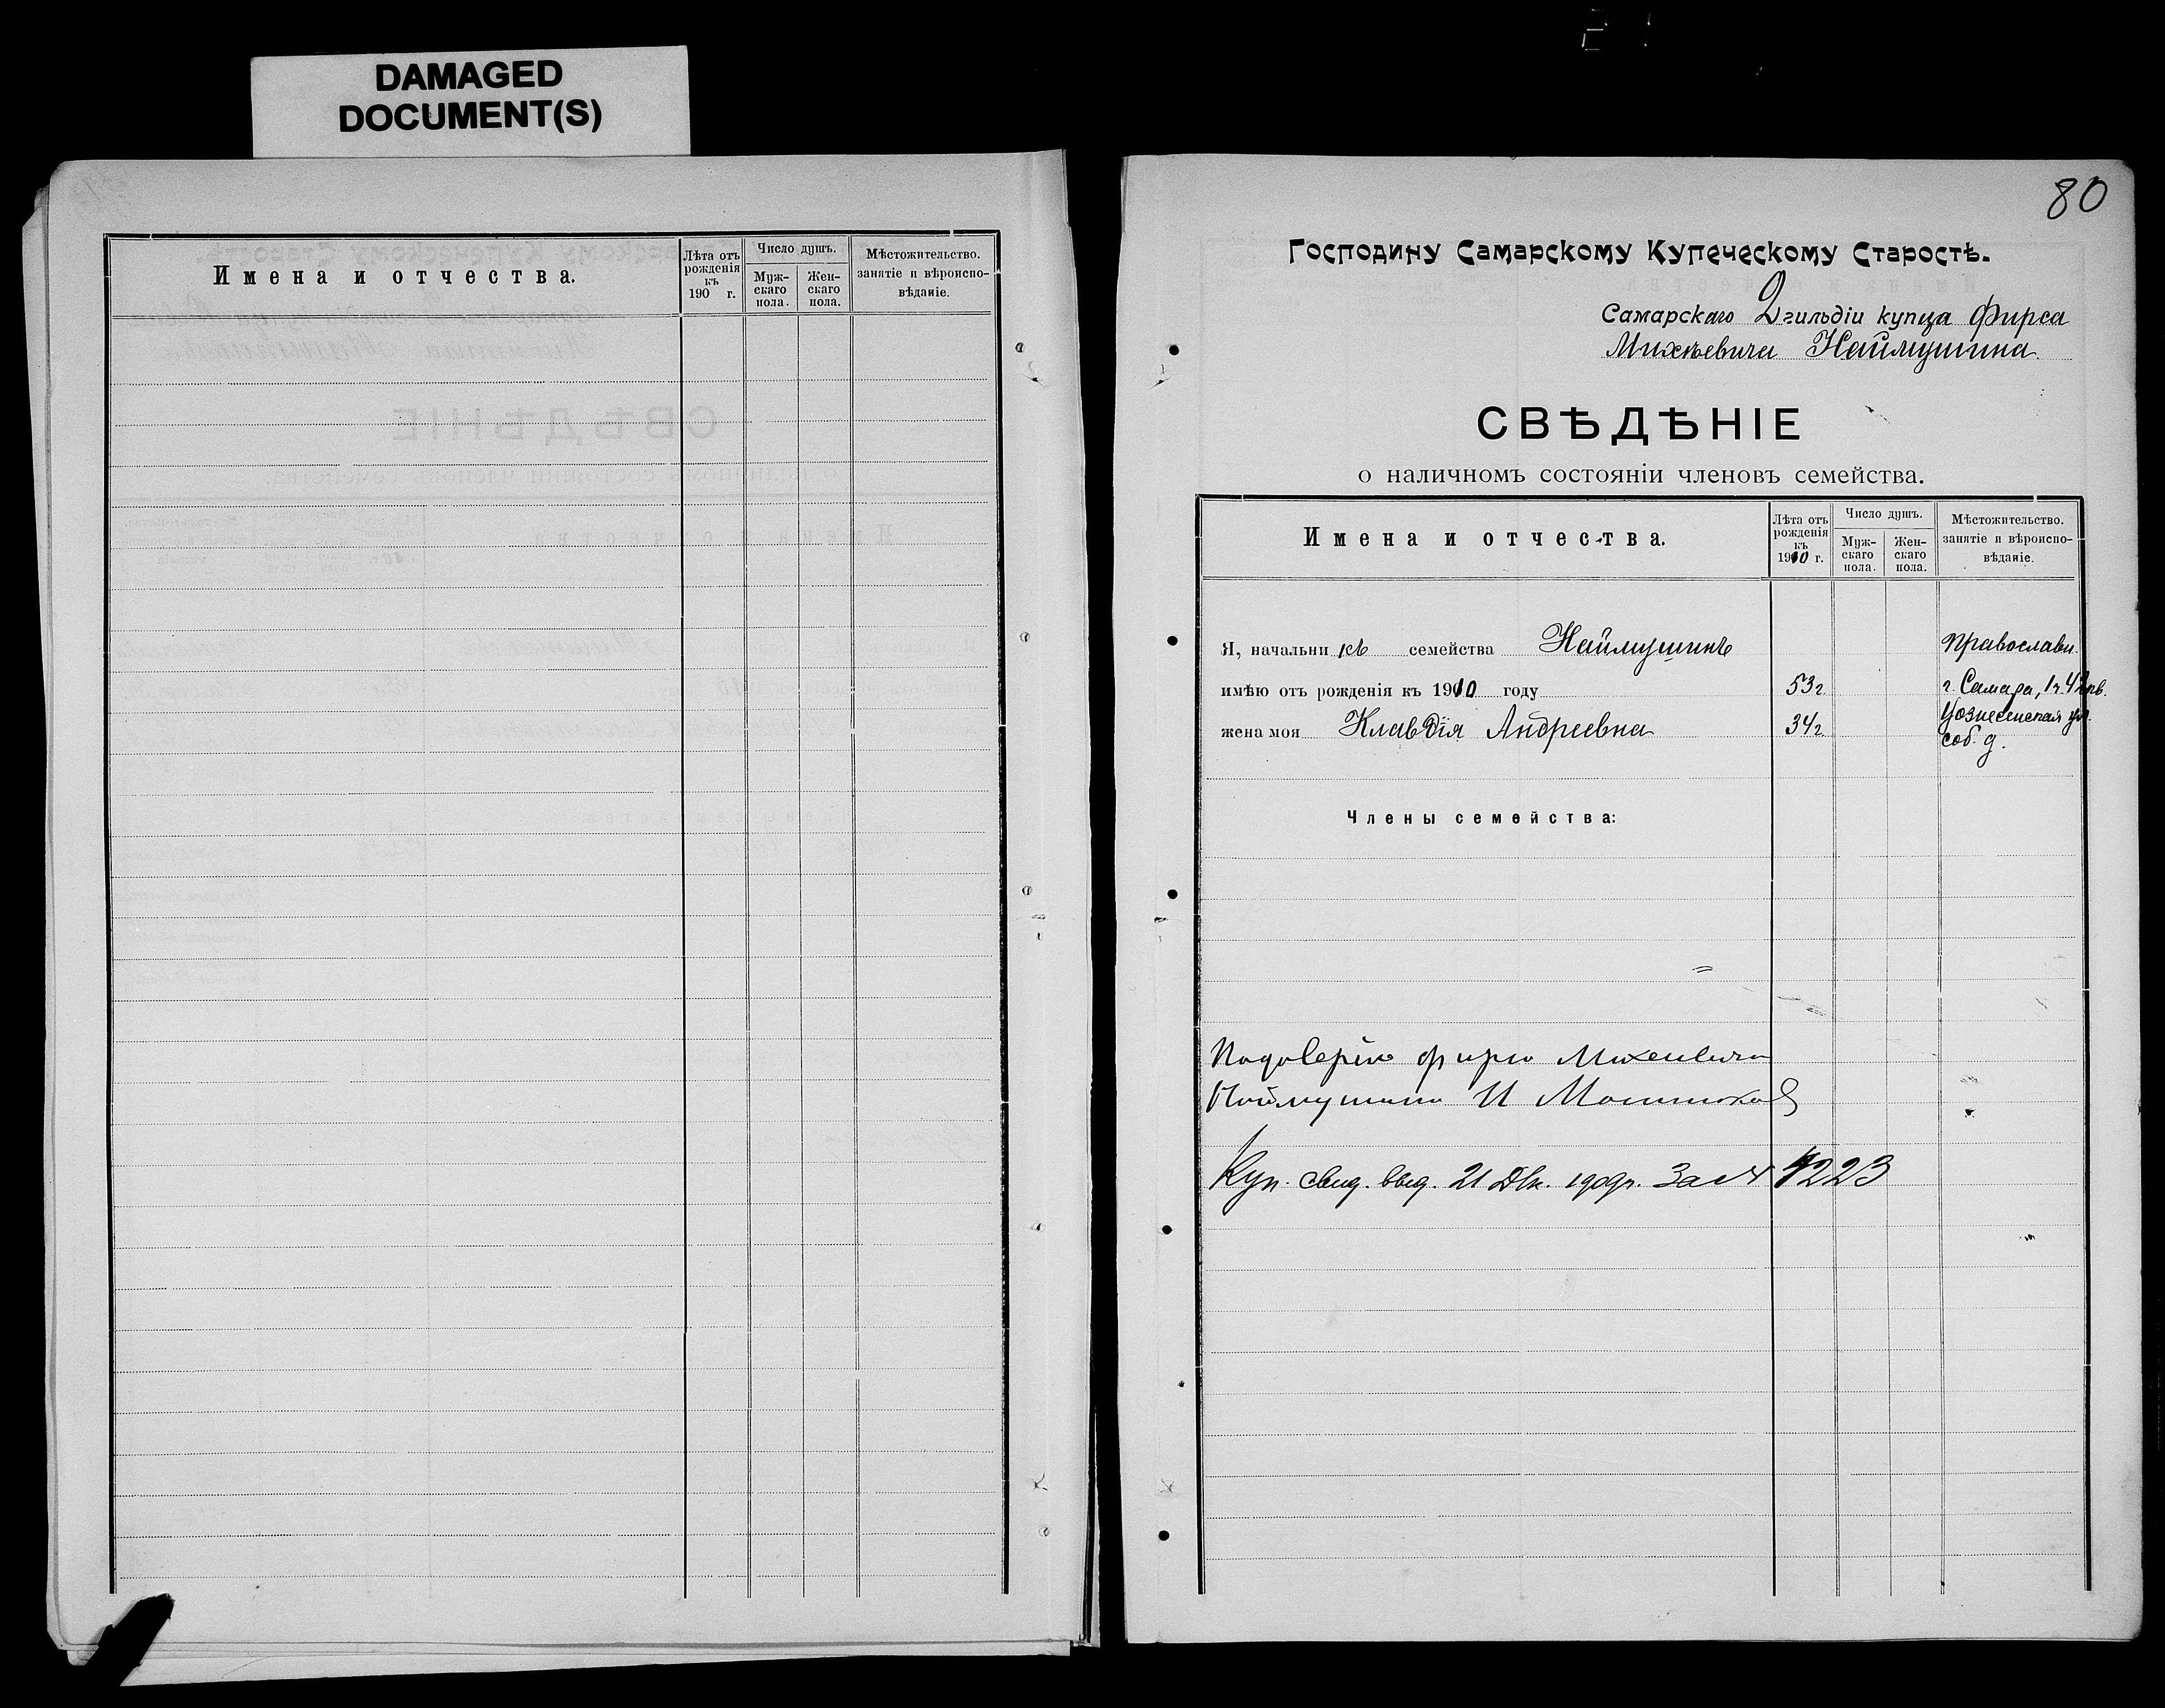 DAMAGED
DOCUMENT(S)
Имена и отчества.
Лѣта отъ рожденія къ 190 г.
Число душъ.
Мужскаго пола.
Женскаго пола.
Мѣстожительство. занятіе и вѣроисповѣданіе.
80
Господину Самарскому Купеческому Старостѣ.
Самарскаго 2 гильдіи купца Фирса
Михѣевича Наймушина.
СВѢДѢНІЕ
о наличномъ состояніи членовъ семейства.
Имена и отчества.
Лѣта отъ рожденія къ 1910 г.
Число душъ.
Мужскаго пола.
Женскаго пола.
Мѣстожительство. занятіе и вѣроисповѣданіе.
Я, начальникъ семейства Наймушинъ Православн.
имѣю отъ рожденія къ 1910 году 53 г. г. Самара, 1 ч. 42 кв.
жена моя Клавдія Андреевна 34 г. Вознесенская ул.
соб. д.
Члены семейства:
Подоверію фирсо Михеивича
Наймушина И
Куп. свид. выд. 21 Дек. 1909 г. за № 4223